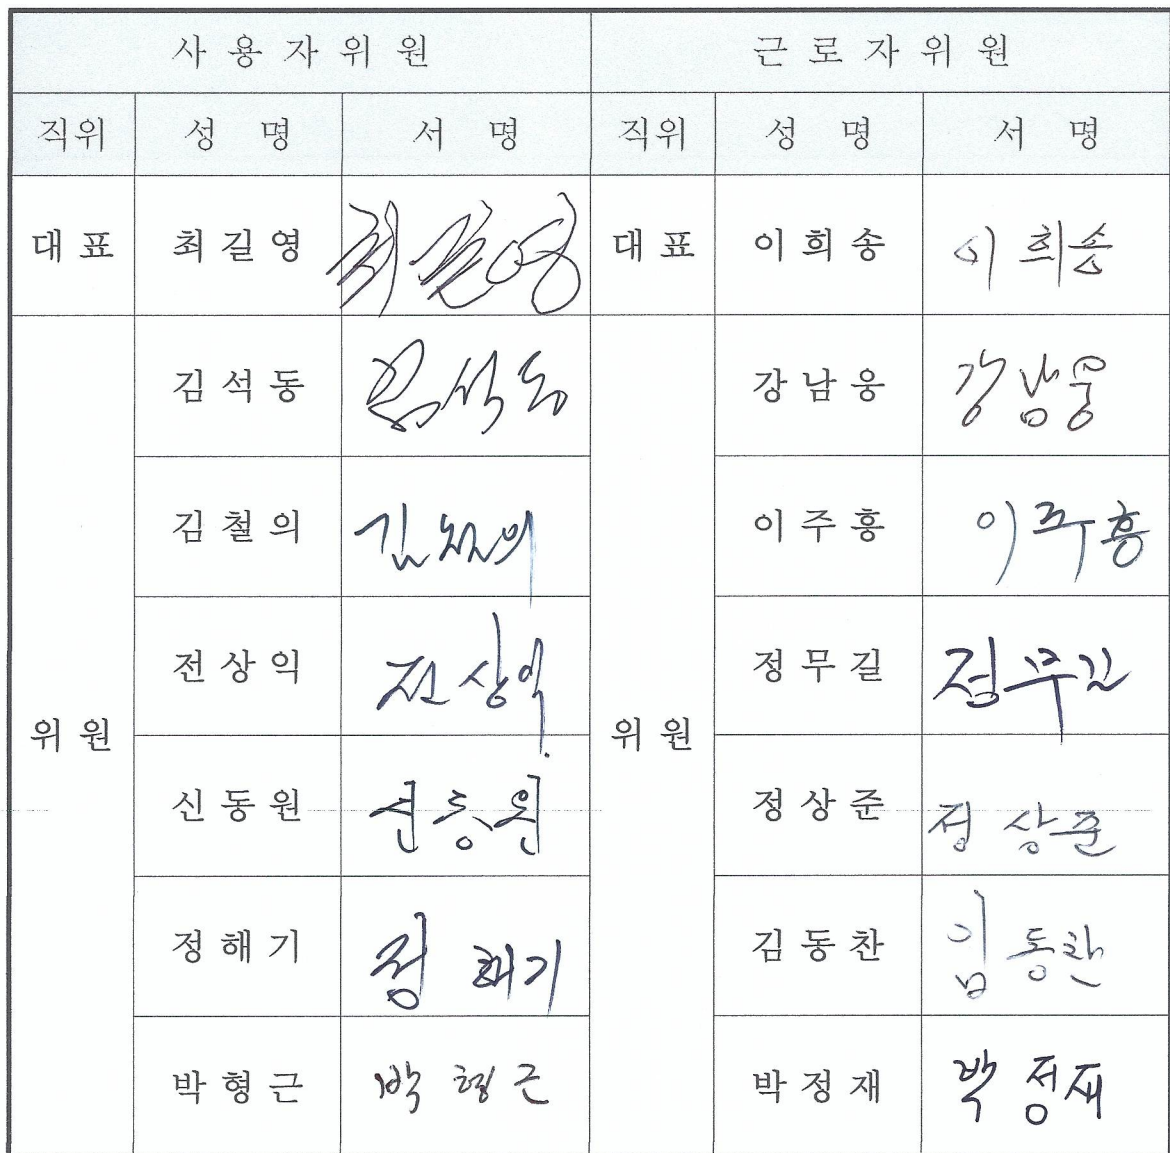 사용자위원 근로자위원
직위 성명 서명 직위 성명 서명
대표 최길영 최길영 대표 이희송 이희송
김석동 김석동 강남웅 강남웅
김철의 김철의 이주흥 이주흥
전상익 전상익 정무길 정무길
위원 위원
신동원 신동원 정상준 정상준
정해기 정해기 김동찬 임동찬
박형근 박형근 박정재 박정재